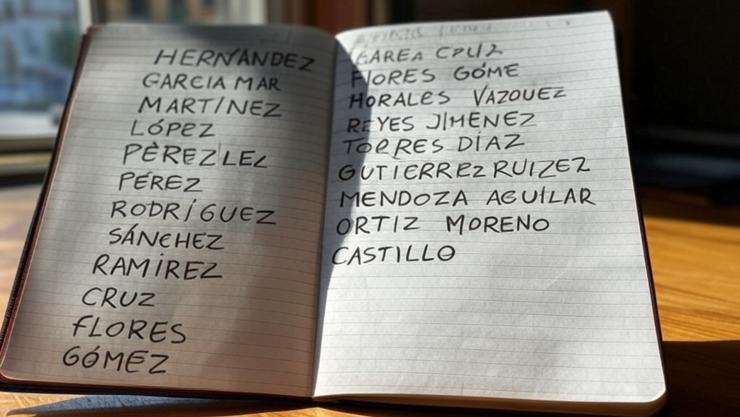 HERNÁNDEZ
GARCIA MAR
MARTÍNEZ
LÓPEZ
PÉREZLEZ
PÉREZ
RODRÍGUEZ
SÁNCHEZ
RAMÍREZ
CRUZ
FLORES
GÓMEZ
FLORES GÓME
MORALES VÁZQUEZ
REYES JIMÉNEZ
TORRES DÍAZ
GUTIERREZ RUIZEZ
MENDOZA AGUÍLAR
ORTIZ MORENO
CASTILLO